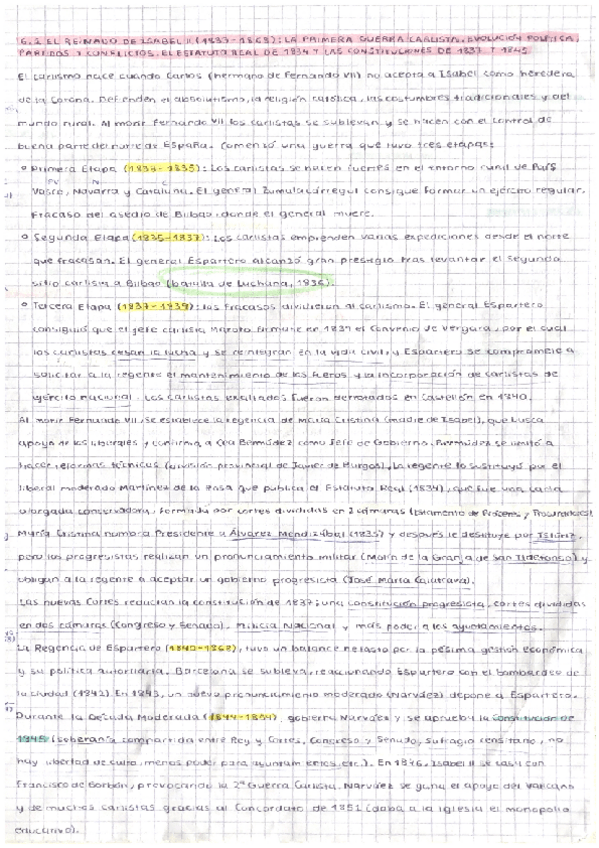 6.2 EL REINADO DE ISABEL II (1833-1868): LA PRIMERA GUERRA CARLISTA. EVOLUCIÓN POLÍTICA,
PARTIDOS Y CONFLICTOS. EL ESTATUTO REAL DE 1834 Y LAS CONSTITUCIONES DE 1837 Y 1845.
El carlismo nace cuando Carlos (hermano de Fernando VII) no acepta a Isabel como heredera
de la Corona. Defienden el absolutismo, la religión católica, las costumbres tradicionales y del
mundo rural. Al morir Fernando VII los carlistas se sublevan y se hacen con el control de
buena parte del norte de España. Comenzó una guerra que tuvo tres etapas:
Primera Etapa (1833-1835): Los carlistas se hacen fuertes en el entorno rural de País
Vasco, Navarra y Cataluña. El general Zumalacárregui consigue formar un ejército regular.
Fracaso del asedio de Bilbao, donde el general muere.
Segunda Etapa (1835-1837): Los carlistas emprenden varias expediciones desde el norte
que fracasan. El general Espartero alcanzó gran prestigio tras levantar el segundo
sitio carlista a Bilbao (batalla de Luchana, 1836).
Tercera Etapa (1837-1839): los fracasos dividieron al carlismo. El general Espartero
consiguió que el jefe carlista Maroto firmase en 1839 el Convenio de Vergara, por el cual
los carlistas cesan la lucha y se reintegran en la vida civil, y Espartero se compromete a
solicitar a la regente el mantenimiento de los fueros y la incorporación de carlistas al
ejército nacional. Los carlistas exaltados fueron derrotados en Castellón en 1840.
Al morir Fernando VII, se establece la regencia de María Cristina (madre de Isabel), que busca
apoyo de los liberales y confirma a Cea Bermúdez como Jefe de Gobierno. Bermúdez se limitó a
hacer reformas técnicas (división provincial de Javier de Burgos), La regente lo sustituyó por el
liberal moderado Martínez de la Rosa que publica el Estatuto Real (1834), que fue una carta
otorgada conservadora, formada por cortes divididas en 2 cámaras (Estamento de Próceres y Procuradores).
María Cristina nombra Presidente a Álvarez Mendizábal (1835) y después le destituye por Istúriz,
pero los progresistas realizan un pronunciamiento militar (Motín de la Granja de San Ildefonso) y
obligan a la regente a aceptar un gobierno progresista (José María Calatrava).
Las nuevas Cortes redactan la constitución de 1837; una constitución progresista, cortes divididas
en dos cámaras (Congreso y Senado), Milicia Nacional y más poder a los ayuntamientos.
La Regencia de Espartero (1840-1868), tuvo un balance nefasto por la pésima gestión económica
y su política autoritaria. Barcelona se subleva, reaccionando Espartero con el bombardeo de
la ciudad (1842). En 1843, un nuevo pronunciamiento moderado (Narváez) depone a Espartero.
Durante la Década Moderada (1844-1854), gobierna Narváez y se aprueba la Constitución de
1845 (soberanía compartida entre Rey y Cortes, Congreso y Senado, sufragio censitario, no
hay libertad de culto, menos poder para ayuntamientos, etc.). En 1846, Isabel II se casa con
Francisco de Borbón, provocando la 2ª Guerra Carlista. Narváez se gana el apoyo del Vaticano
y de muchos carlistas gracias al Concordato de 1851 (daba a la iglesia el monopolio
educativo).